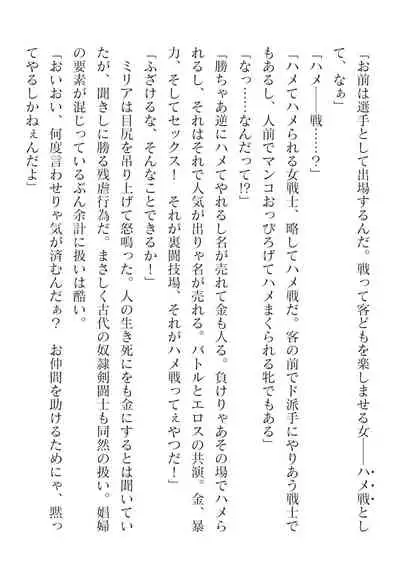 「お前は選手として出場するんだ。戦って客どもを楽しませる女――ハメ戦とし
て、なぁ」
「ハメ――戦……？」
「ハメてハメられる女戦士、略してハメ戦だ。客の前でド派手にやりあう戦士で
もあるし、人前でマンコおっぴろげてハメまくられる牝でもある」
「なっ……なんだって!?」
「勝ちゃあ逆にハメてやれるし名が売れて金も入る。負けりゃあその場でハメら
れるし、それはそれで人気が出りゃ名が売れる。バトルとエロスの共演。金、暴
力、そしてセックス！　それが裏闘技場、それがハメ戦ってぇやつだ！」
「ふざけるな、そんなことできるか！」
　ミリアは目尻を吊り上げて怒鳴った。人の生き死にをも金にするとは聞いてい
たが、聞きしに勝る残虐行為だ。まさしく古代の奴隷剣闘士も同然の扱い。娼婦
の要素が混じっているぶん余計に扱いは酷い。
「おいおい、何度言わせりゃ気が済むんだぁ？　お仲間を助けるためにゃ、黙っ
てやるしかねぇんだよ」